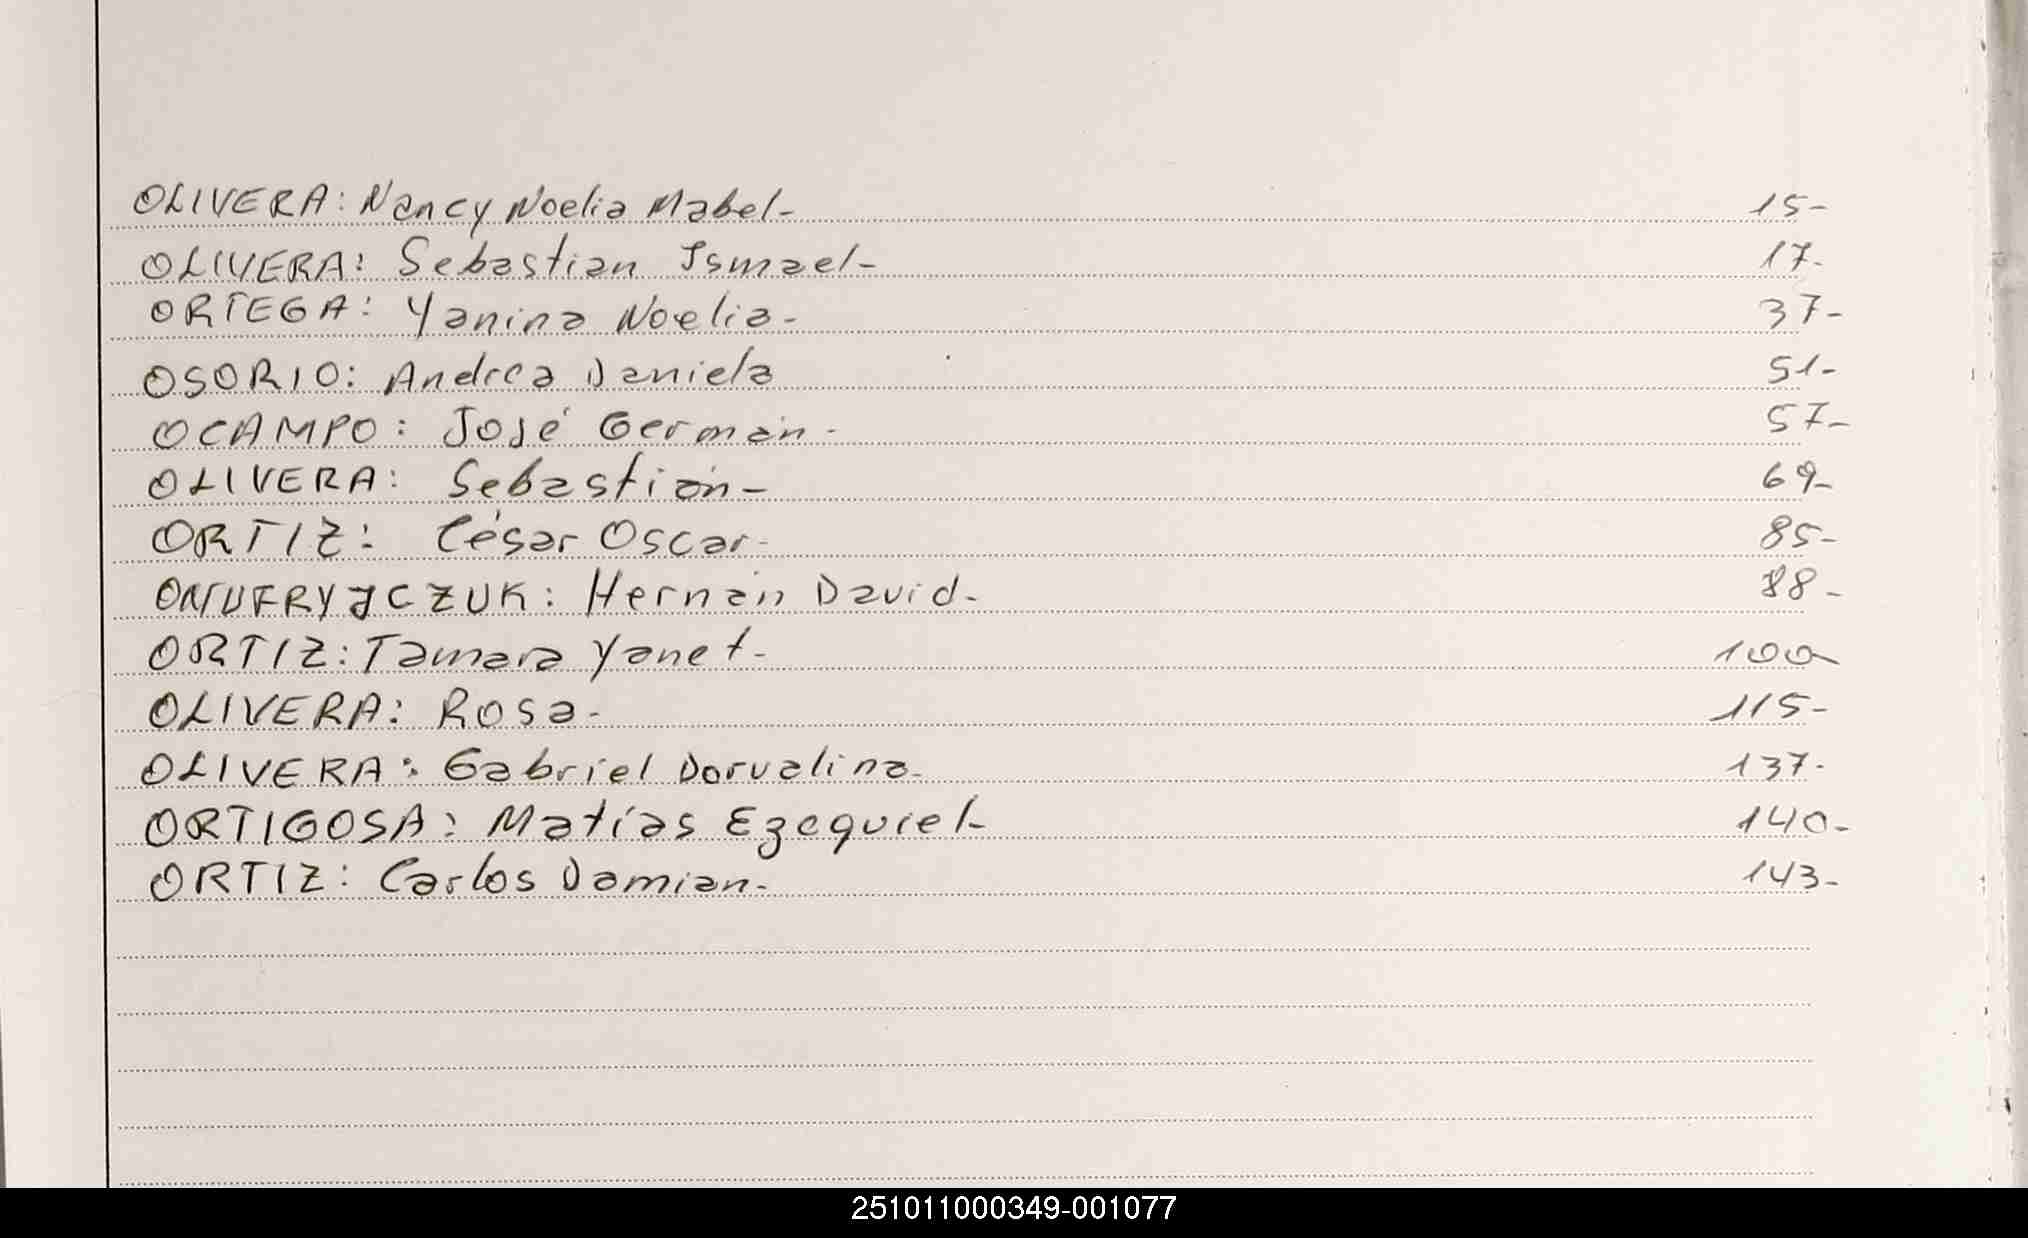 OLIVERA: Nancy Noelia Mabel- 15-
OLIVERA: Sebastian Ismael- 17-
ORTEGA: Yanina Noelia- 37-
OSORIO: Andrea Daniela 51-
OCAMPO: José Germán- 57-
OLIVERA: Sebastián- 69-
ORTIZ: César Oscar- 85-
ONUFRYJCZUK: Hernán David- 88-
ORTIZ: Tamara Yanet- 100-
OLIVERA: Rosa- 115-
OLIVERA: Gabriel Dorvalina- 137-
ORTIGOSA: Matías Ezequiel- 140-
ORTIZ: Carlos Damian- 143-
251011000349-001077